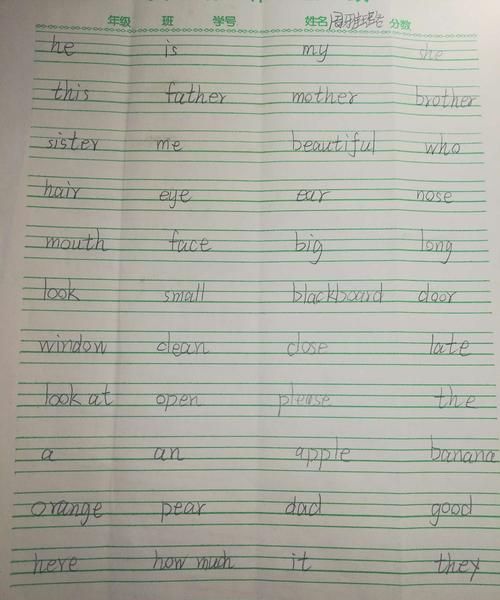 年级 班 学号 姓名 分数
he is my she
this father mother brother
sister me beautiful who
hair eye ear nose
mouth face big long
look small blackboard door
window clean close late
look at open please the
a an apple banana
orange pear dad good
here how much it they